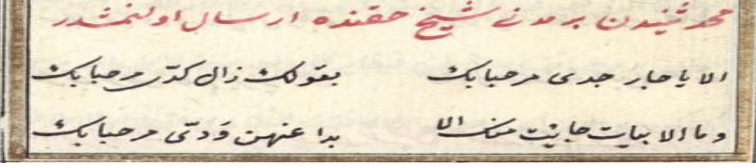 محدثیندن بر مدنی شیخ حقنده ارسال اولنمشدر
الا یا جار جدی مرحبا بك بقولك زال كدّی مرحبا بك
وما الابیات جائت منك الا بدا عنهن ودّی مرحبا بك